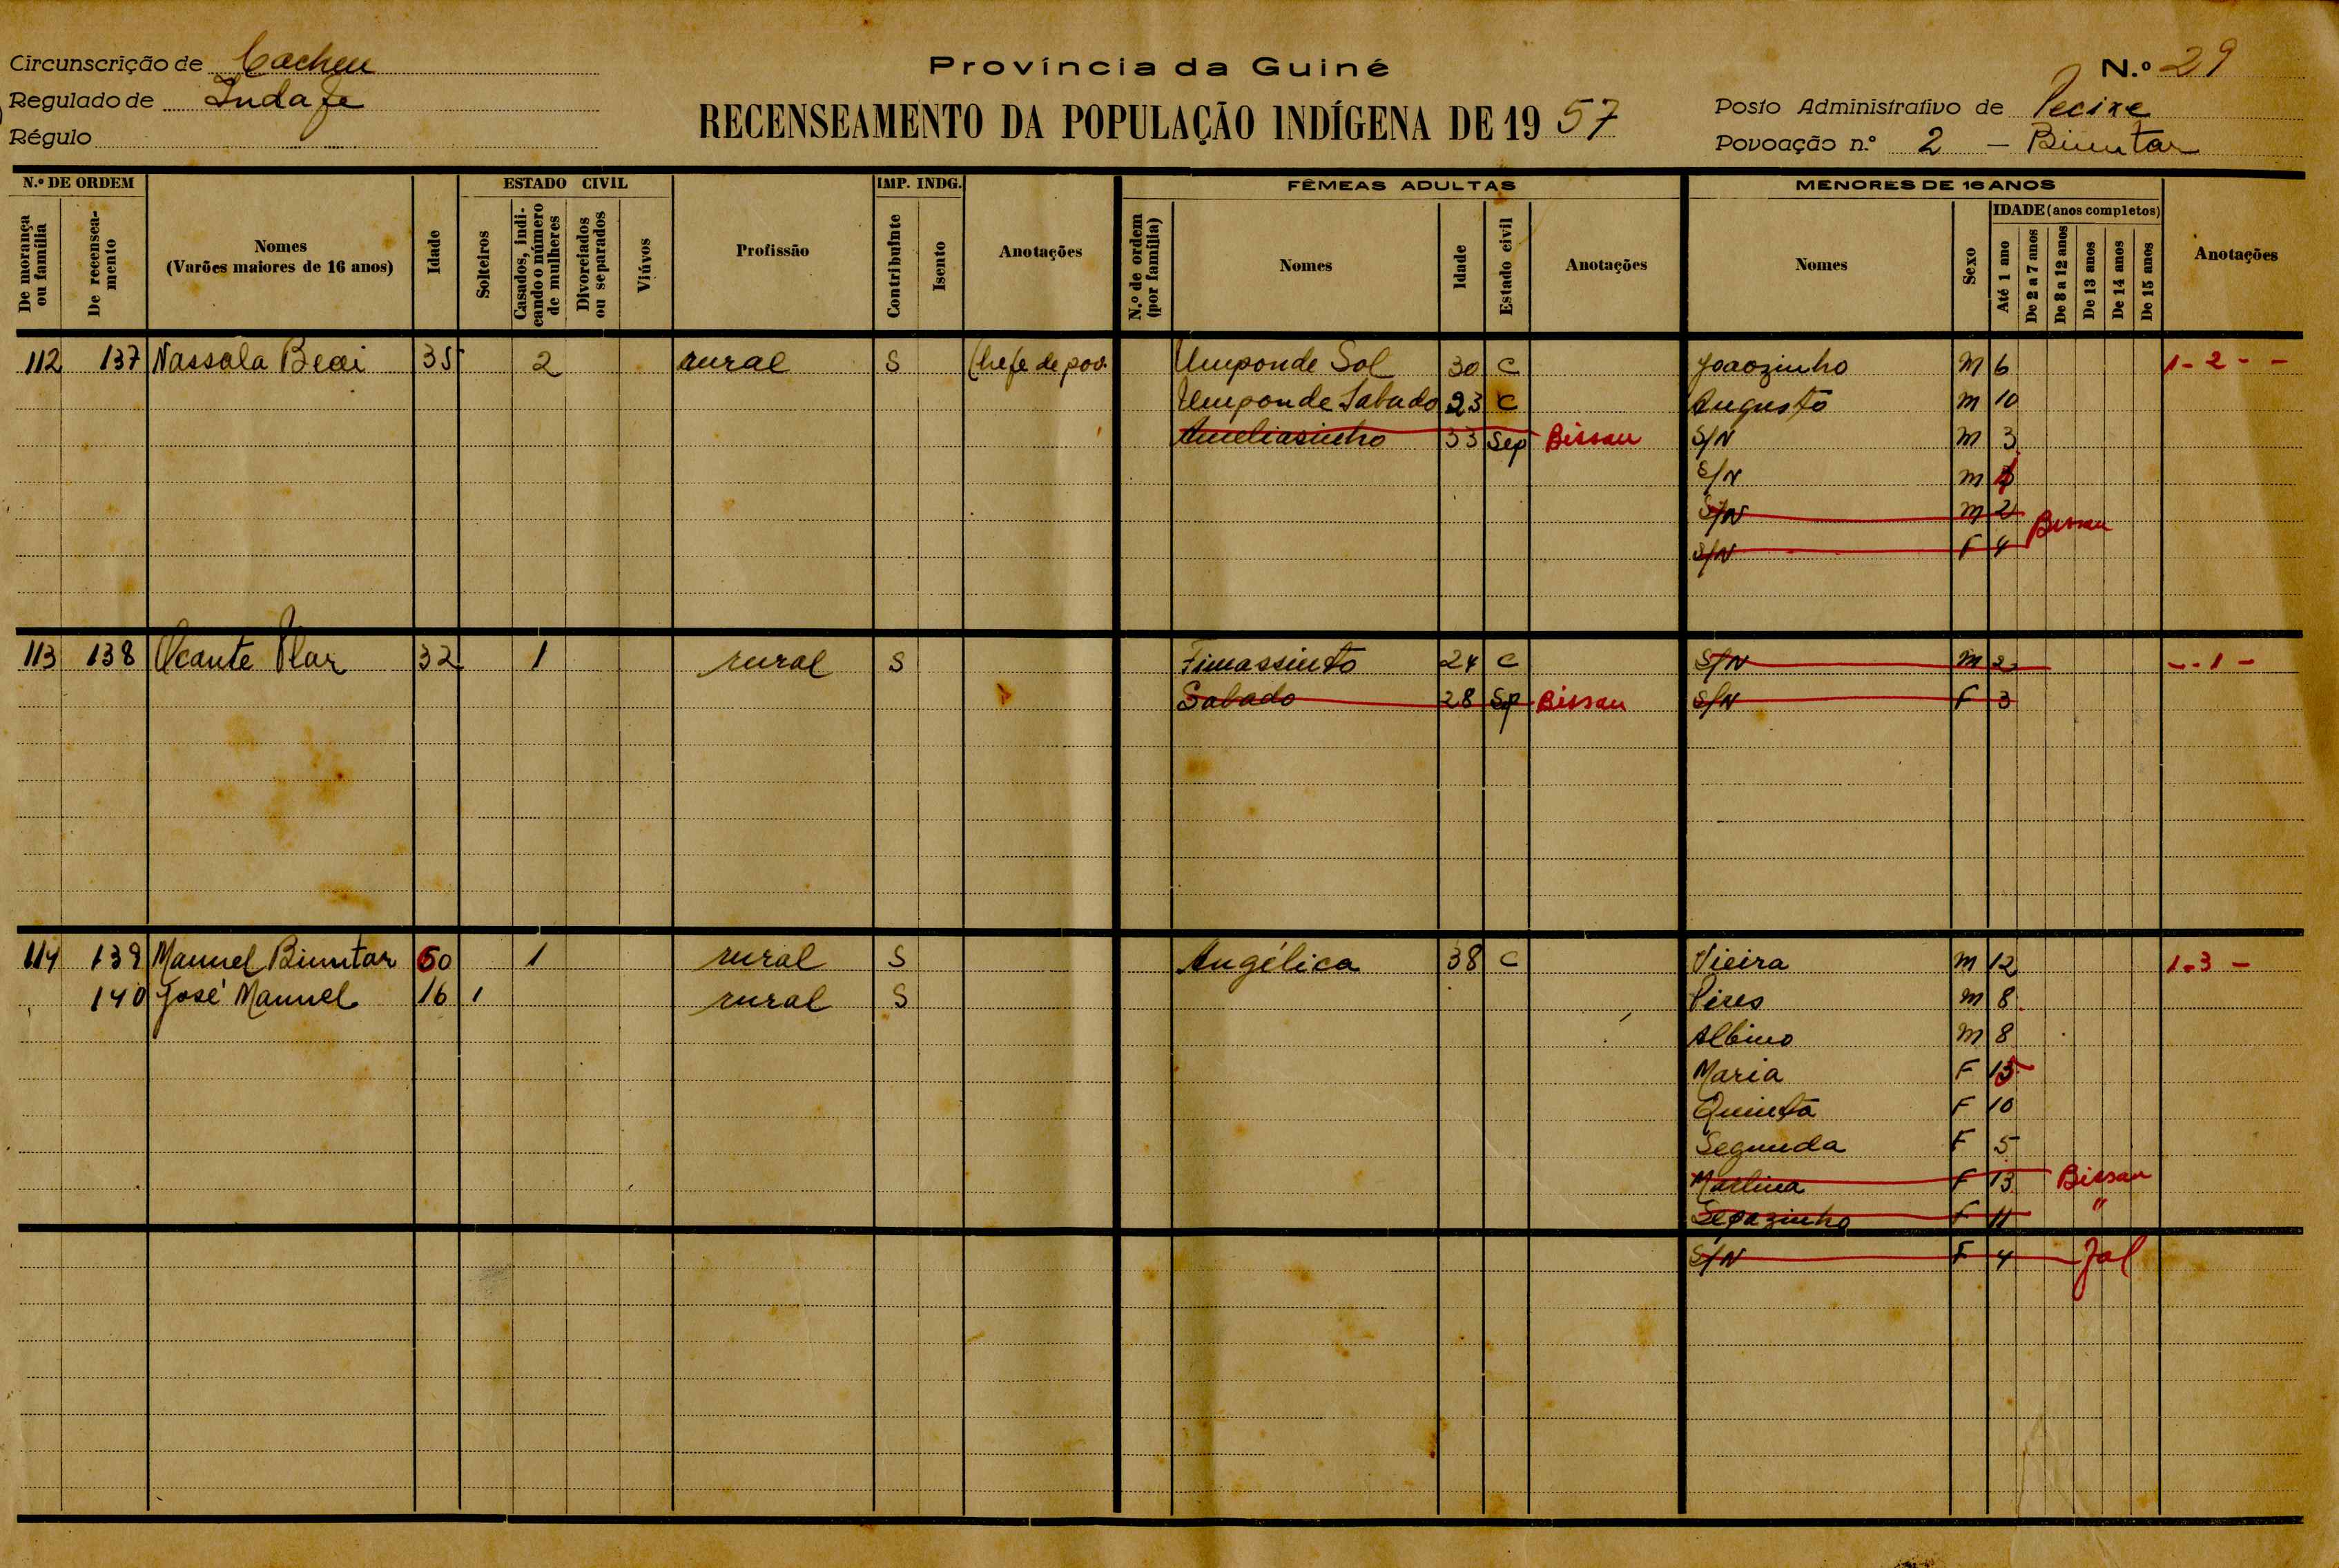 Circunscrição de Cacheu
Regulado de Indafe
Régulo
Província da Guiné
RECENSEAMENTO DA POPULAÇÃO INDÍGENA DE 1957
N.º 29
Posto Administrativo de Pecixe
Povoação n.º 2 - Bimtar
N.º DE ORDEM
De morança ou família
De recenseamento
Nomes
(Varões maiores de 16 anos)
Idade
ESTADO CIVIL
Solteiros
Casados, indicando o número de mulheres
Divorciados ou separados
Viúvos
Profissão
IMP. INDG.
Contribuinte
Isento
Anotações
FÊMEAS ADULTAS
N.º de ordem (por família)
Nomes
Idade
Estado civil
Anotações
MENORES DE 16 ANOS
Nomes
Sexo
IDADE (anos completos)
Até 1 ano
De 2 a 7 anos
De 8 a 12 anos
De 13 anos
De 14 anos
De 15 anos
Anotações
112 137 Nassala Beai 35 2 rural S Chefe de pov. Umponde Sol 30 C Joaozinho M 6 1-2--
Umponde Sabado 23 C Augusto M 10
Ameliasinho 33 Sep Bissau S/N M 3
S/N M
S/N M 2 Bissau
S/N F 4
113 138 Ocante Plar 32 1 rural S Fimassinto 24 C S/N M 2 --1-
Sabado 28 Sp Bissau S/N F 3
114 139 Manuel Bimtar 60 1 rural S Angélica 38 C Vieira M 12 1-3-
140 José Manuel 16 1 rural S Pires M 8
Albino M 8
Maria F 15
Quinta F 10
Segunda F 5
Martina F 13 Bissau
F 11 "
S/N F 4 Jol